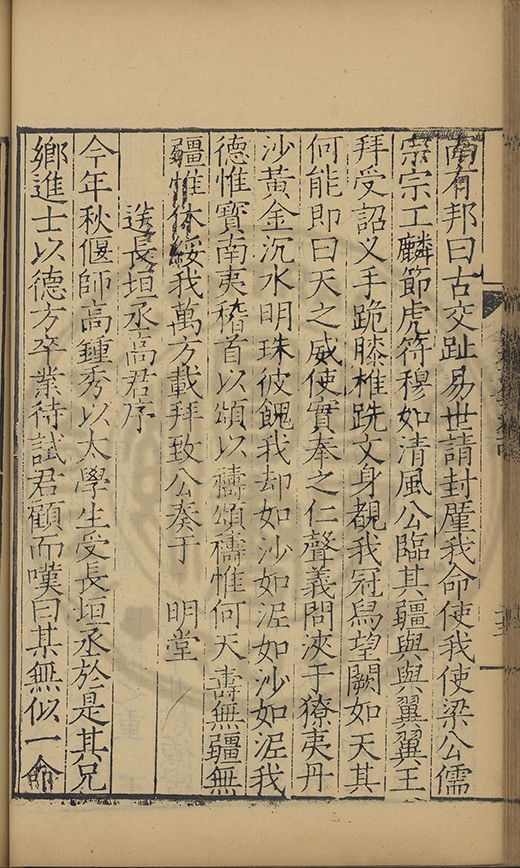 南有邦曰古交趾易世請封釐我命使我使梁公儒
宗宗工麟節虎符穆如清風公臨其疆與與翼翼王
拜受詔义手跪膝椎跣文身覩我冠舄望闕如天其
何能即曰天之威使實奉之仁聲義問浹于獠夷丹
沙黃金沉水明珠彼餽我却如沙如泥如沙如泥我
德惟寶南夷稽首以頌以禱頌禱惟何天壽無疆無
疆惟休綏我萬方載拜致公奏于　明堂
送長垣丞高君序
今年秋偃師高鍾秀以太學生受長垣丞於是其兄
鄉進士以德方卒業待試君顧而嘆曰某無似一命